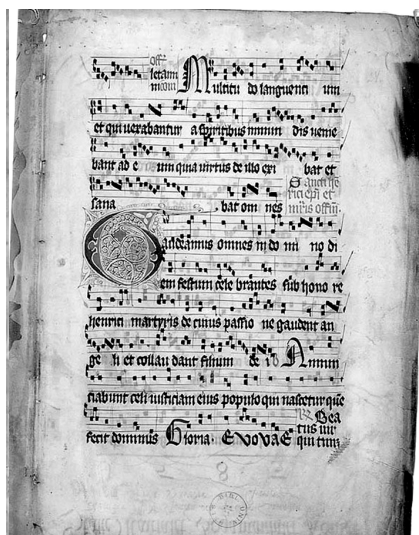 off
letam
Multitu do languenti um
et qui vexabantur a spiritibus immun dis venie
bant ad e um quia virtus de illo exi bat et
sana bat om nes
Sancti he
rici epi et
mris offm.
Gaudeamus omnes in do mi no di
em festum cele brantes sub hono re
henrici martyris de cuius passio ne gaudent an
ge li et collau dant filium de i Annun
ciabunt celi iusticiam eius populo qui nascetur que
fecit dominus Gloria. EVOVAE
Bea
tus vir
qui tim